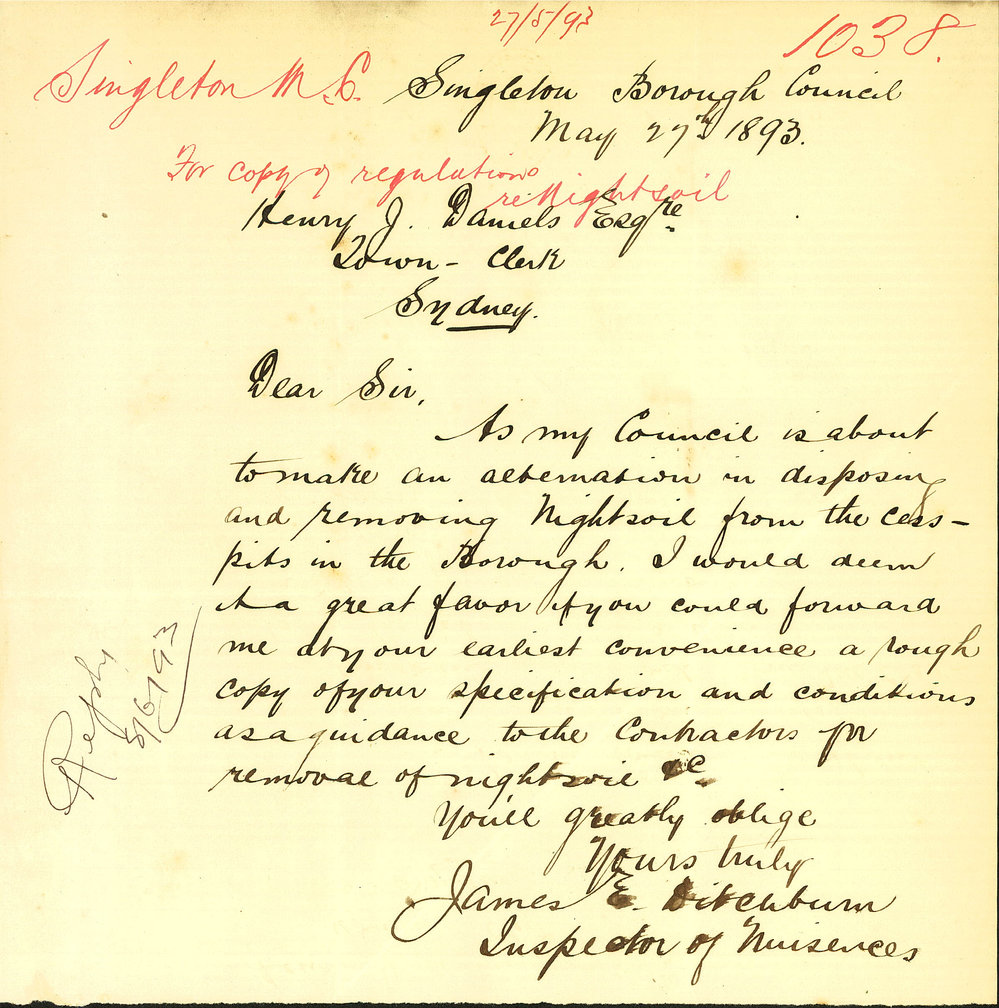 27/5/93
1038.
Singleton M.C.
Singleton Borough Council
May 27th 1893.
For copy of regulations
re Nightsoil
Henry J. Daniels Esqre.
Town-Clerk
Sydney.
Dear Sir,
As my Council is about
to make an alternation in disposing
and removing Nightsoil from the cess-
pits in the Borough. I would deem
it a great favor if you could forward
me at your earliest convenience a rough
copy of your specification and conditions
as a guidance to the Contractors for
removal of nightsoil &c.
You'll greatly oblige
Yours truly
James E. Ditchburn
Inspector of Nuisences
Reply
5/6/93